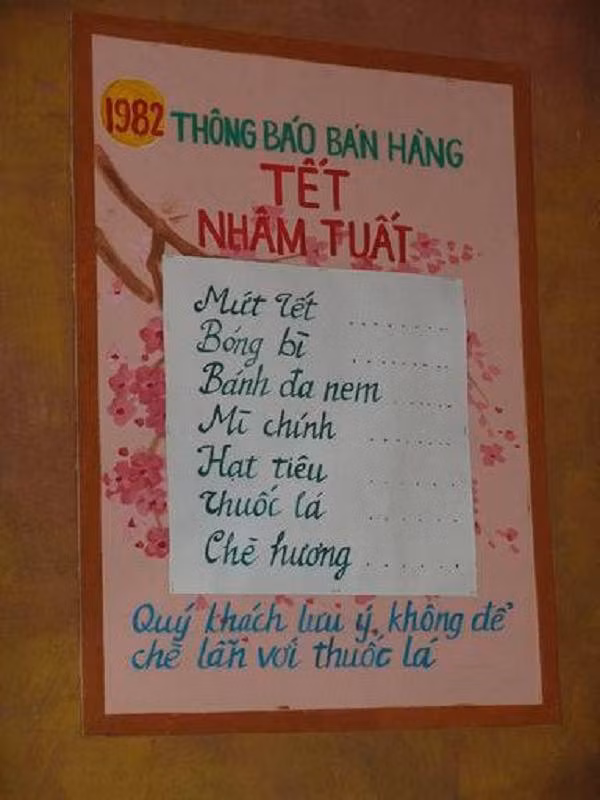 1982 THÔNG BÁO BÁN HÀNG
TẾT
NHÂM TUẤT
Mứt Tết ........
Bóng bì ........
Bánh đa nem .....
Mì chính .......
Hạt tiêu .......
Thuốc lá .......
Chè hương ......
Quý khách lưu ý, không để
chè lẫn với thuốc lá